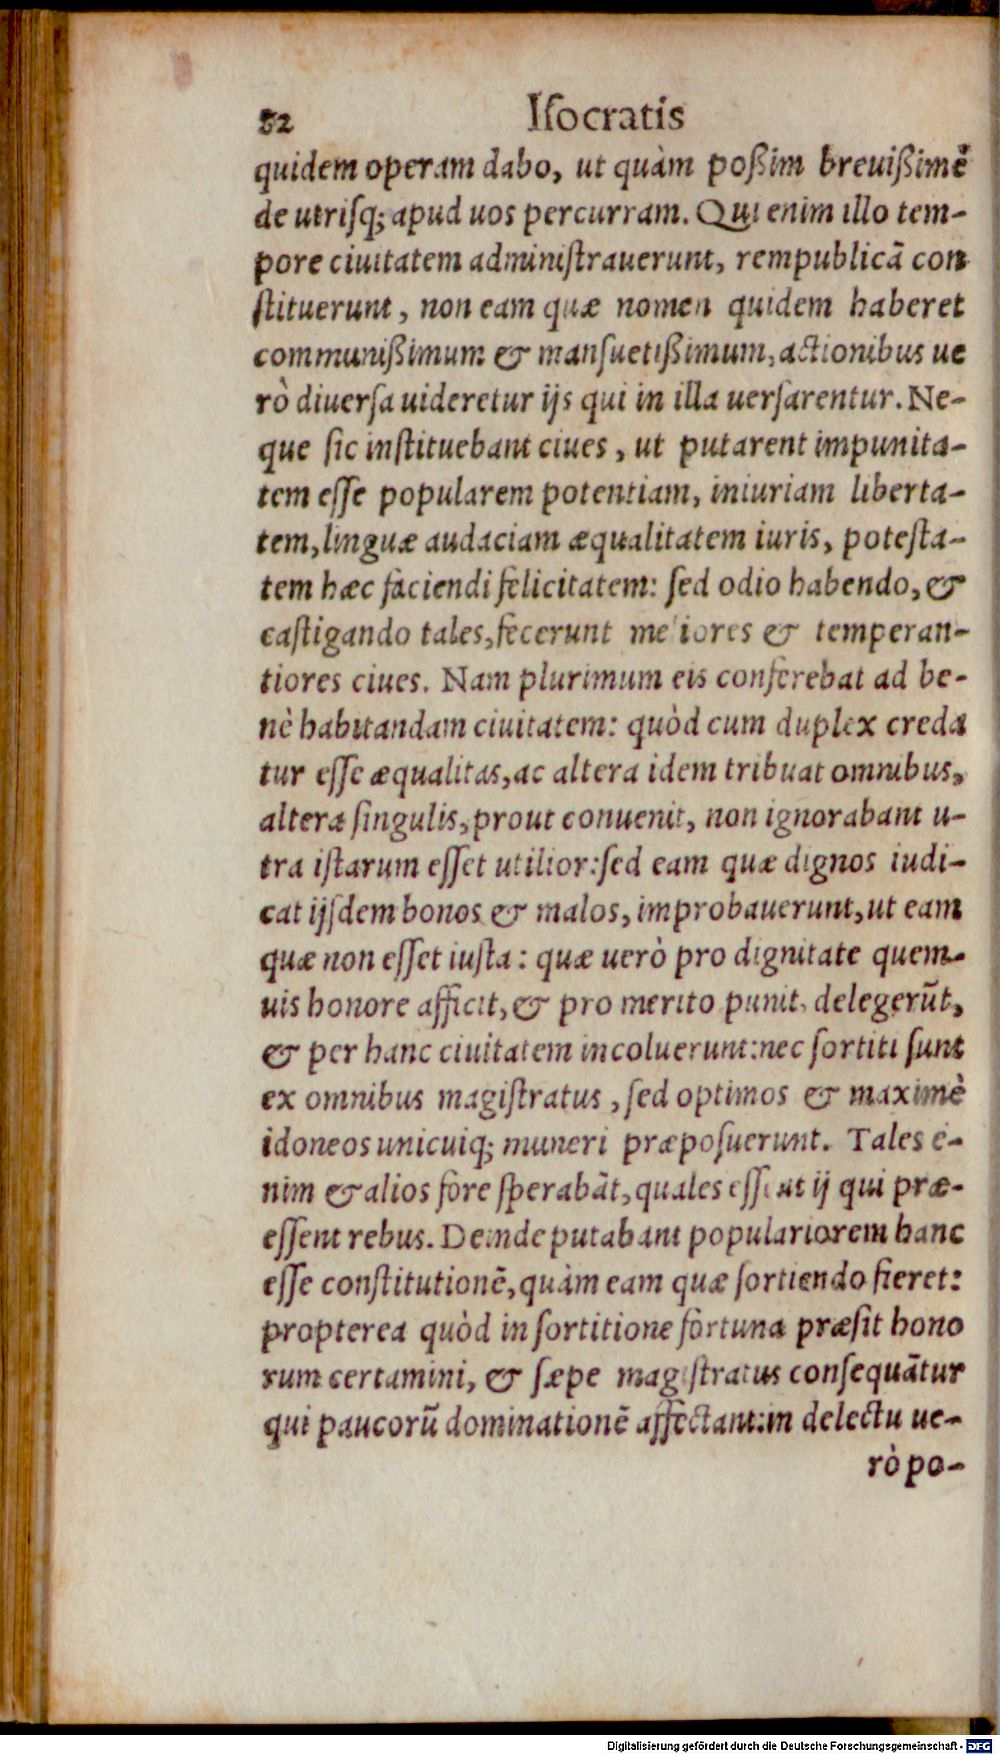 82 Iſocratis
quidem operam dabo, ut quàm poßim breuißimè
de utriſq; apud uos percurram. Qui enim illo tem-
pore ciuitatem adminiſtrauerunt, rempublicā con
ſtituerunt, non eam quæ nomen quidem haberet
communißimum & manſuetißimum, actionibus ue
rò diuerſa uideretur ijs qui in illa uerſarentur. Ne-
que ſic inſtituebant ciues, ut putarent impunita-
tem eſſe popularem potentiam, iniuriam liberta-
tem, linguæ audaciam æqualitatem iuris, poteſta-
tem hæc faciendi felicitatem: ſed odio habendo, &
caſtigando tales, fecerunt meliores & temperan-
tiores ciues. Nam plurimum eis conferebat ad be-
nè habitandam ciuitatem: quòd cum duplex creda
tur eſſe æqualitas, ac altera idem tribuat omnibus,
altera ſingulis, prout conuenit, non ignorabant u-
tra iſtarum eſſet utilior: ſed eam quæ dignos iudi-
cat ijſdem bonos & malos, improbauerunt, ut eam
quæ non eſſet iuſta: quæ uerò pro dignitate quem-
uis honore afficit, & pro merito punit, delegerūt,
& per hanc ciuitatem incoluerunt: nec ſortiti ſunt
ex omnibus magiſtratus, ſed optimos & maximè
idoneos unicuiq; muneri præpoſuerunt. Tales e-
nim & alios fore ſperabāt, quales eſſent ij qui præ-
eſſent rebus. Deinde putabant populariorem hanc
eſſe conſtitutionē, quàm eam quæ ſortiendo fieret:
propterea quòd in ſortitione fortuna præſit bono
rum certamini, & ſæpe magiſtratus conſequātur
qui paucorū dominationē affectant: in delectu ue-
rò po-
Digitalisierung gefördert durch die Deutsche Forschungsgemeinschaft - DFG